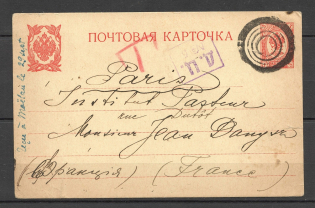 ПОЧТОВАЯ КАРТОЧКА
Paris
Institut Pasteur
rue Dutot
Monsieur Jean Danysz
(Франція) (France)